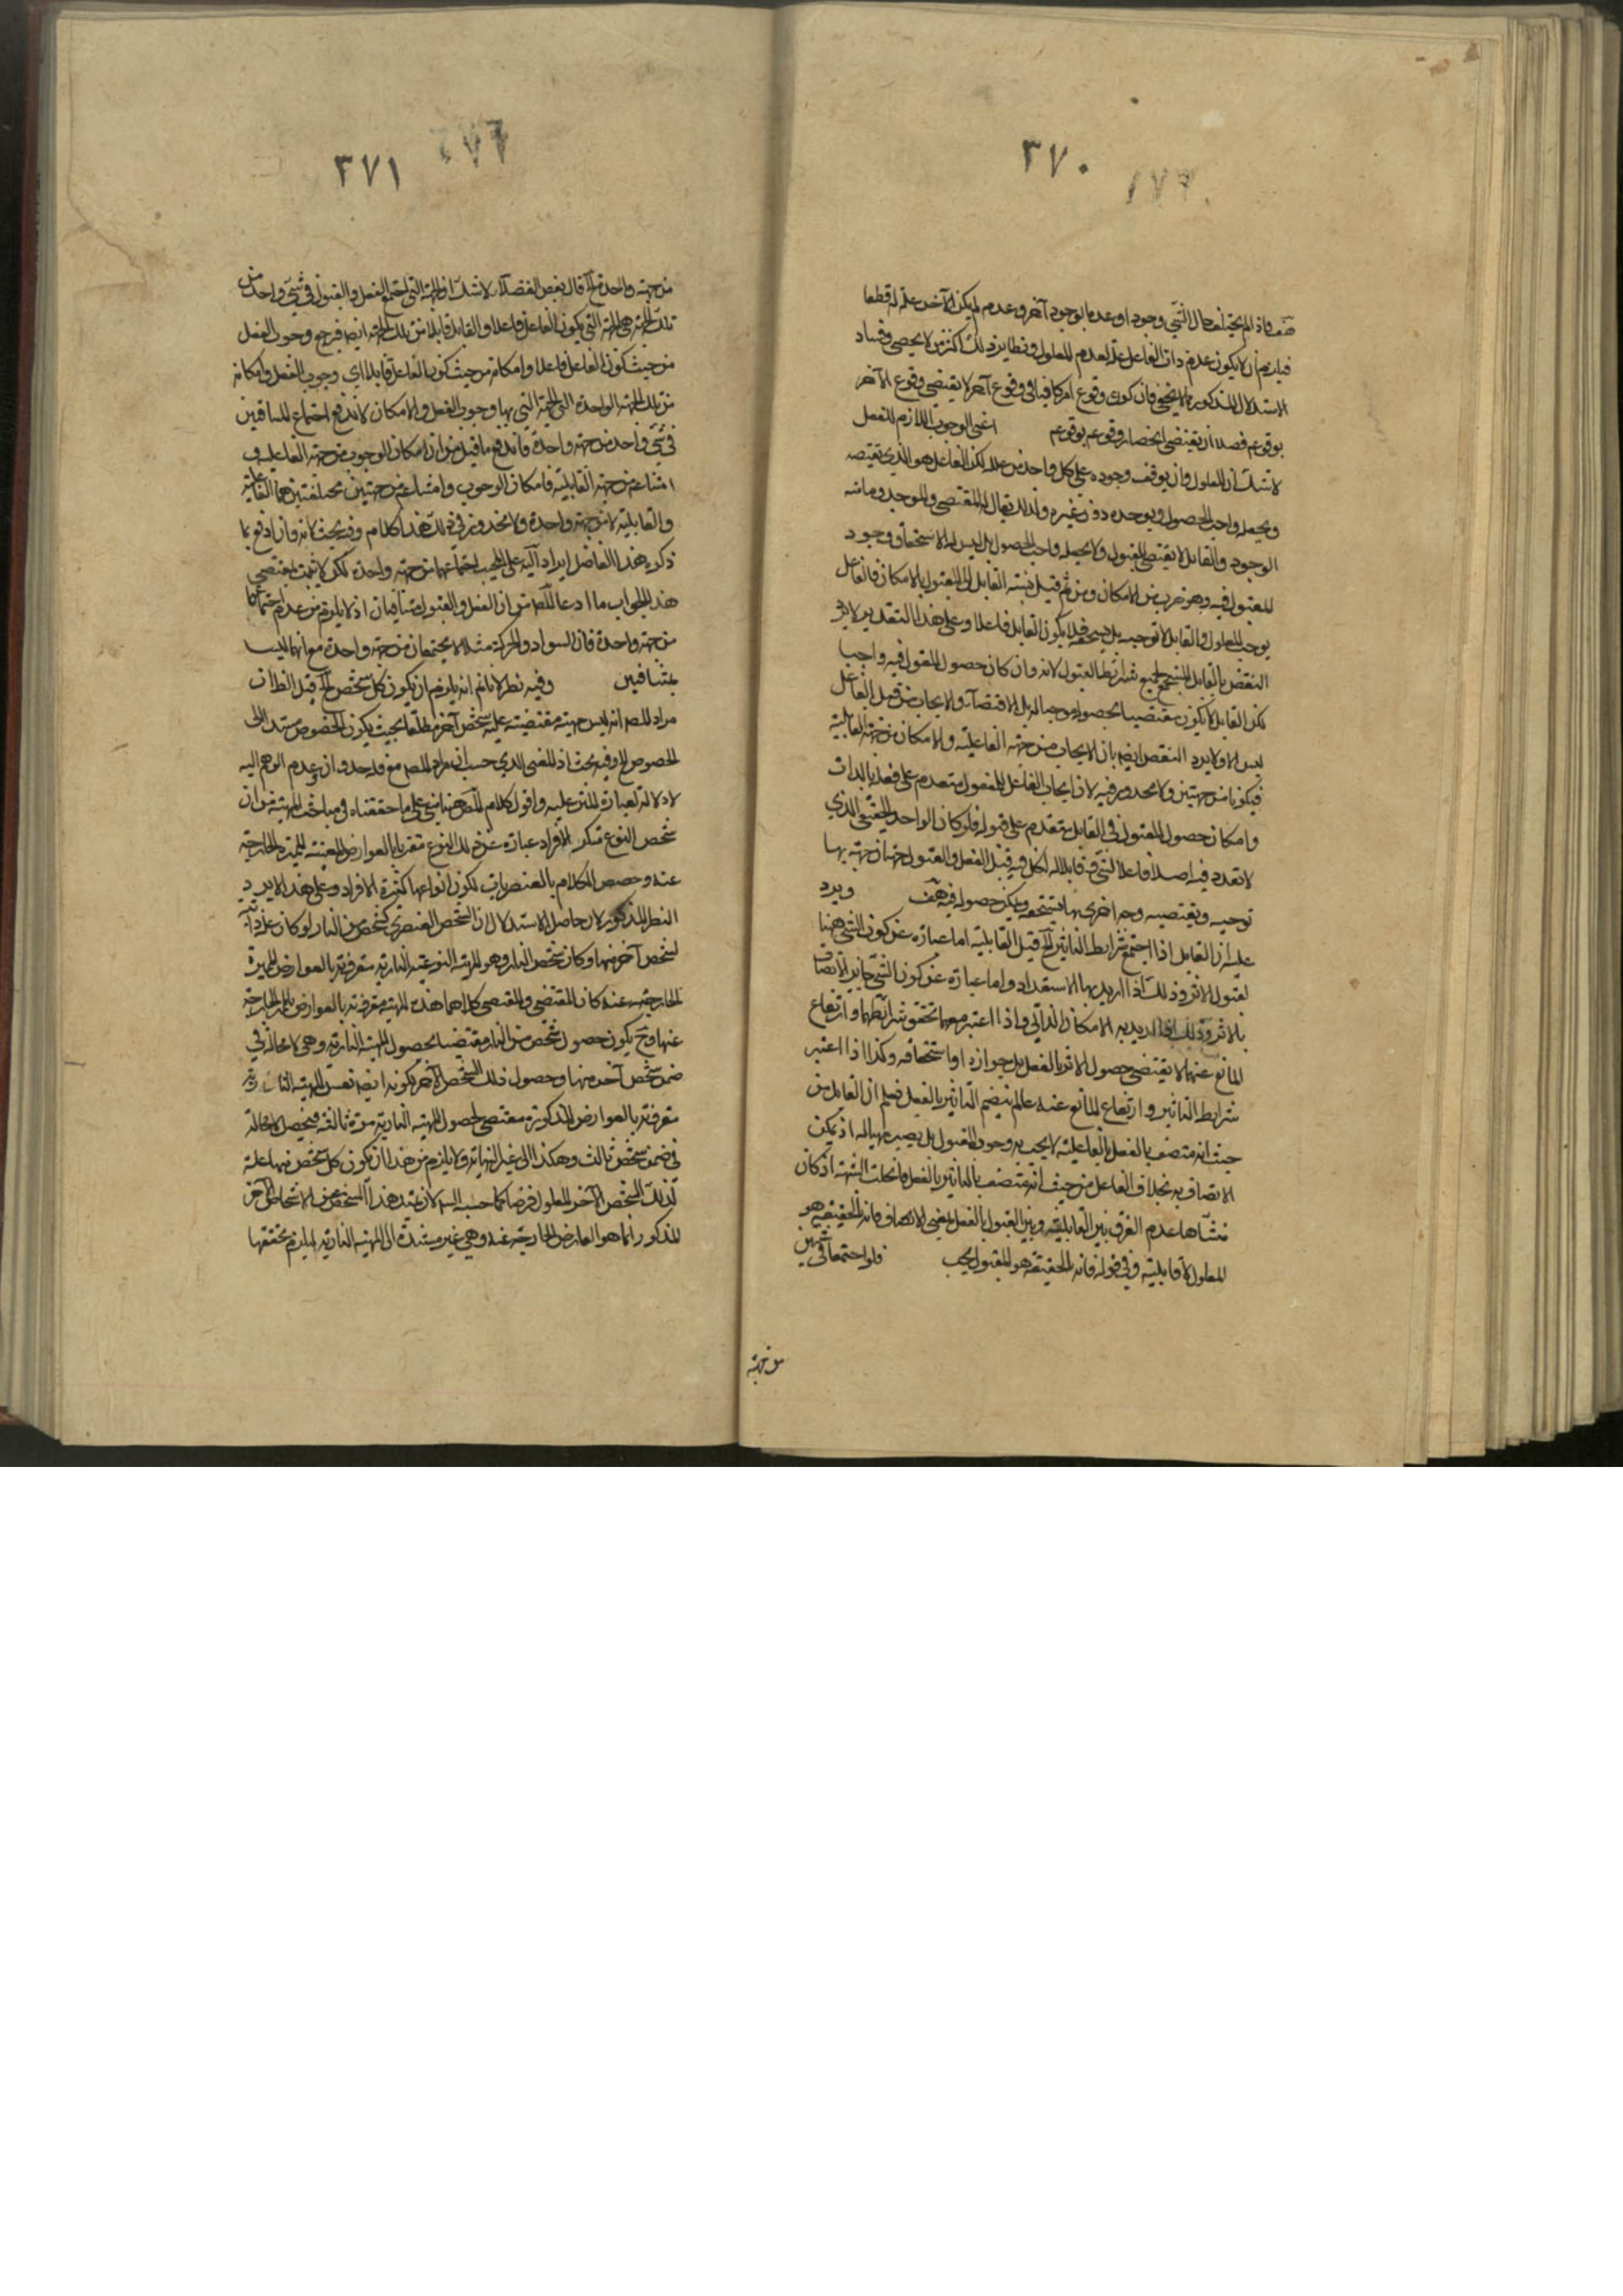 ٣٧٠
ضعف واذ لم يختلف حال الشي وجودا وعدما بوجود آخر وعدمه لم يكن الآخر علة له قطعا
فيلزم ان لا يكون عدم ذات الفاعل علة لعدم المعلول ونظاير ذلك اكثر من لا يحصى وفساد
الاستدلال المذكور مما لا يخفى فان كون وقوع امر كافيا في وقوع آخر لا يقتضي وقوع الآخر
بوقوعه فضلا ان يقتضي انحصار وقوعه بوقوعه اعني الوجوب اللازم للفعل
لا شك ان المعلول وان يوقف وجوده على كل واحد من علله لكن الفاعل هو الذي يقتضيه
ويجعله واجب الحصول ويوجده دون غيره ولذلك يقال له المقتضي والموجد
الوجود والقابل لا يقتضي المقبول ولا يجعله واجب الحصول بل ليس له الا استحقاق وجود
المقبول فيه وهو ضرب من الامكان ومن ثم قيل نسبة القابل الى المقبول بالامكان فالفاعل
يوجب المعلول والقابل لا توجيه بل يستحقه فلا يكون القابل فاعلا وعلى هذا التقدير لا يرد
النقض بالقابل المستجمع لجميع شرايط القبول لانه وان كان حصول المقبول فيه واجبا
لكن القابل لا يكون مقتضيا لحصوله موجبا له بل الاقتضاء والايجاب من قبل الفاعل
ليس الا ولا يرد النقض ايضا بان الايجاب من جهة الفاعلية والامكان من جهة القابلية
فيكونا من جهتين ولا محذور فيه لان ايجاب الفاعل للمفعول متقدم على فعله بالذات
وامكان حصول المقبول في القابل متقدم على قبوله فلو كان الواحد الحقيقي الذي
لا تعدد فيه اصلا فاعلا لشي وقابلا له لكان فيه قبل الفعل والقبول جهتان جهة بها
توجبه ويقتضيه وجهة اخرى بها يستحقه ويمكن حصوله فيه هف ويرد
عليه ان القابل اذا اجتمع شرايط التاثير الخ قيل القابلية اما عبارة عن كون الشي مهيا
لقبول الاثر وذلك اذا اريد بها الاستعداد واما عبارة عن كون الشي جايز الاتصاف
بالاثر وذلك اذا اريد به الامكان الذاتي واذا اعتبر معهما تحقق شرايطهما وارتفاع
المانع عنهما لا يقتضي حصول الاثر بالفعل بل جوازه او استحقاقه وكذا اذا اعتبر
شرايط التاثير وارتفاع المانع عنه ما لم ينضم التاثير بالفعل فعلم ان القابل من
حيث انه متصف بالفعل بالقابلية لا يجب به وجود المقبول بل يصير مهيا له اذ يمكن
الاتصاف به بخلاف الفاعل من حيث انه متصف بالتاثير بالفعل فانحلت الشبهة اذ كان
منشاها عدم الفرق بين القابلية وبين القبول بالفعل بمعنى الاتصاف فانه بالحقيقة هو
المعلول لا قابليته وفي قوله فانه بالحقيقة هو المقبول بحث فلو اجتمعا في شيء
من جهة
٣٧١
من جهة واحدة الخ قال بعض الفضلاء لا شك ان الجهة التي اجتمع الفعل والقبول في شيء واحد من
تلك الجهة هي الجهة التي يكون الفاعل فاعلا والقابل قابلا من تلك الجهة ايضا فيرجع وجوب الفعل
من حيث كون الفاعل فاعلا وامكانه من حيث كون الفاعل قابلا اي وجوب الفعل وامكانه
من تلك الجهة الواحدة التي الجهة التي بها وجوب الفعل والامكان لا يندفع اجتماع المتنافيين
في شيء واحد من جهة واحدة فاندفع ما قيل من ان امكان الوجوب من جهة الفاعلية و
امتناعه من جهة القابلية فامكان الوجوب وامتناعه من جهتين مختلفتين هما الفاعلية
والقابلية لا من جهة واحدة ولا محذور في ذلك هذا كلامه وفيه بحث لانه وان اندفع بما
ذكره هذا الفاضل ايراد على المجيب اجتماعهما من جهة واحدة لكن لا يثبت بمقتضى
هذا الجواب ما ادعاه المص من ان الفعل والقبول متنافيان اذ لا يلزم من عدم اجتماعهما
من جهة واحدة فان السواد والحركة مثلا لا يجتمعان من جهة واحدة مع انهما ليسا
بمتنافيين وفيه نظر لانا نم انه يلزم ان يكون كل شخص الخ قيل الظ ان
مراد المص انه ليس جهة مقتضية علية شخص آخر مطلقا بحيث يكون الخصوص مستندا الى
الخصوص الخ وفيه بحث اذ المعنى الذي حسب انه مراد المص مع بعده وان عدم الوهم اليه
لا دلالة لعبارة المتن عليه واقول كلام المص ههنا مبني على ما حققناه في مباحث المهية من ان
شخص النوع متكثر الافراد عبارة عن ذلك النوع مقترنا بالعوارض المعينة المميزة الخارجة
عنه وخصص الكلام بالعنصريات لكون انواعها كثيرة الافراد وعلى هذا لا يرد
النظر المذكور لان حاصل الاستدلال ان الشخص العنصري كشخص من النار لو كان علة ذاتية
لشخص آخر منها وكان شخص النار هو المهية النوعية النارية مقرونة بالعوارض المميزة
الخارجة عنه كان المقتضي والمقتضى كلاهما هذه المهية مقرونة بالعوارض الخارجة
عنها وح يكون حصول شخص من النار مقتضيا لحصول المهية النارية وهي لا محالة في
ضمن شخص آخر منها وحصول ذلك الشخص الآخر لكونه ايضا نفس المهية النارية
مقرونة بالعوارض المذكورة مقتضى لحصول المهية النارية مرة ثالثة فيحصل لا محالة
في ضمن شخص ثالث وهكذا الى غير النهاية ولا يلزم من هذا ان يكون كل شخص منها علة
لذلك الشخص الآخر المعلول فرضا كما حسبه لان تميز هذا الشخص عن الاشخاص الآخر
المذكور انما هو العوارض الخارجة عنه وهي غير مستندة الى المهية النارية ليلزم تحققها